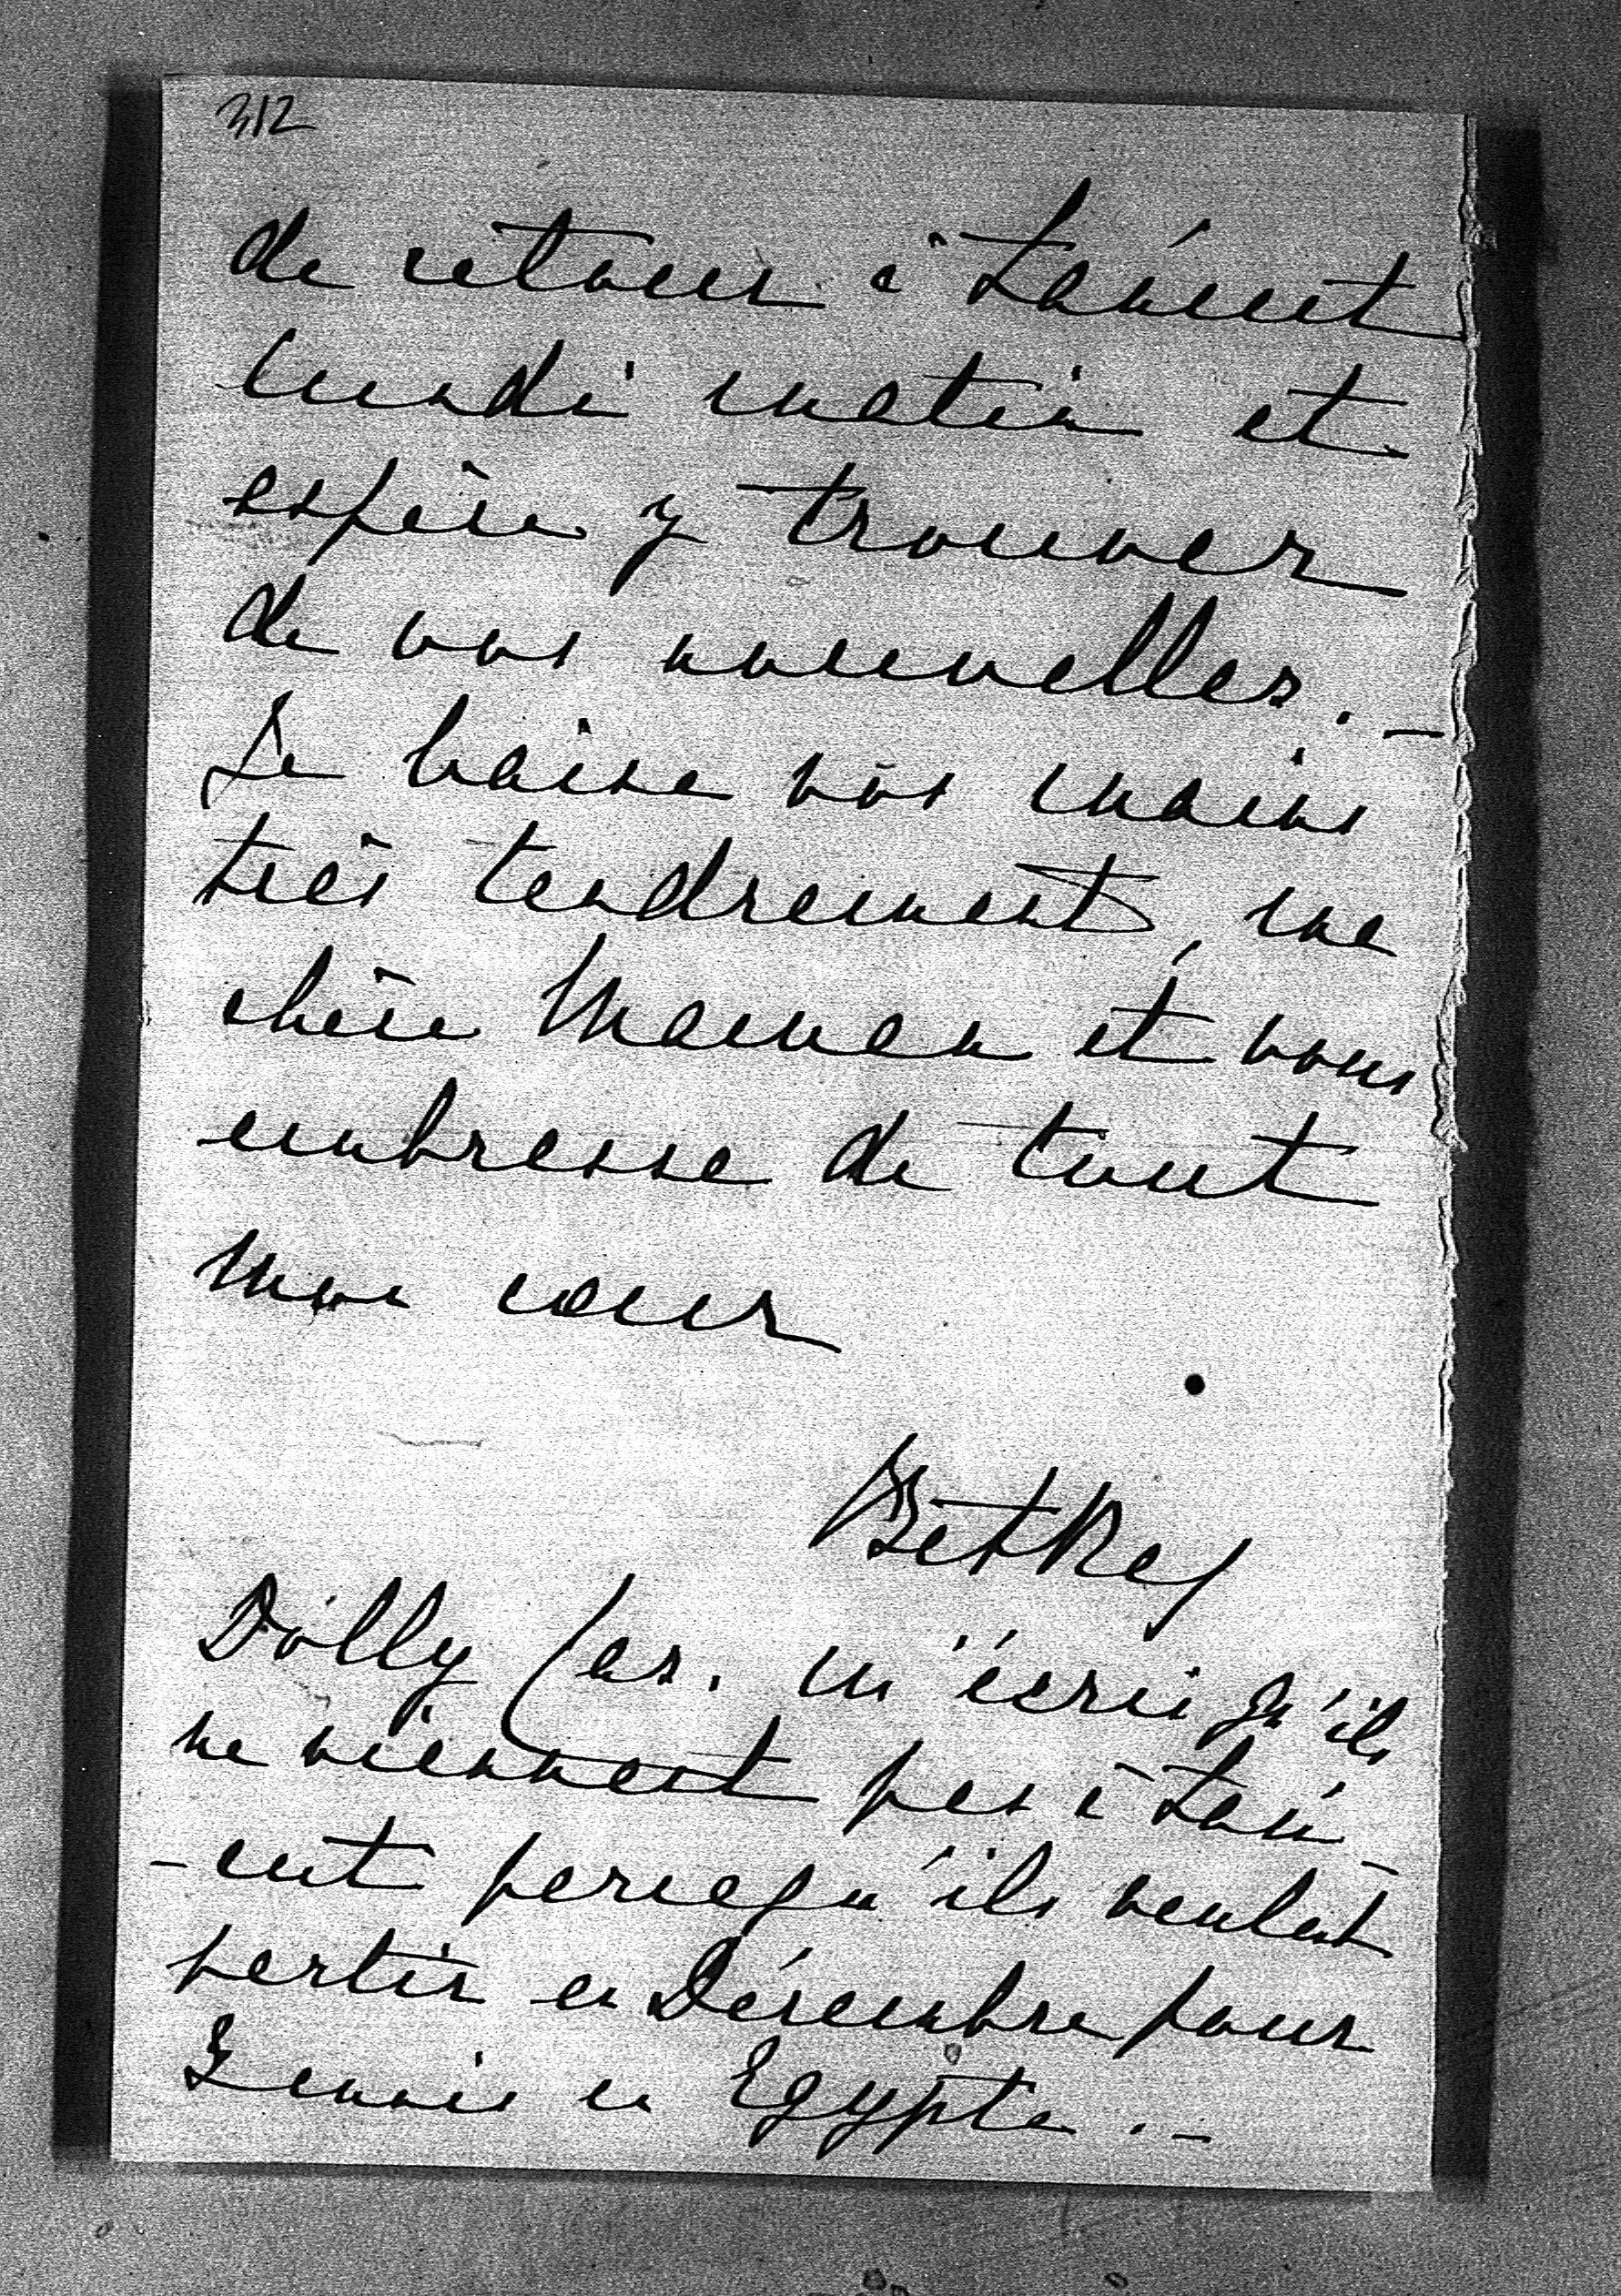 312
de retour à Łańcut
lundi matin et
espère y trouver
de vos nouvelles. —
Je baise vos mains
très tendrement, ma
chère Maman et vous
embrasse de tout
mon cœur
Betka
Dolly m'écrit qu'ils
ne viennent pas à Łań-
-cut parcequ'ils veulent
partir en Décembre pour
Egypte. —